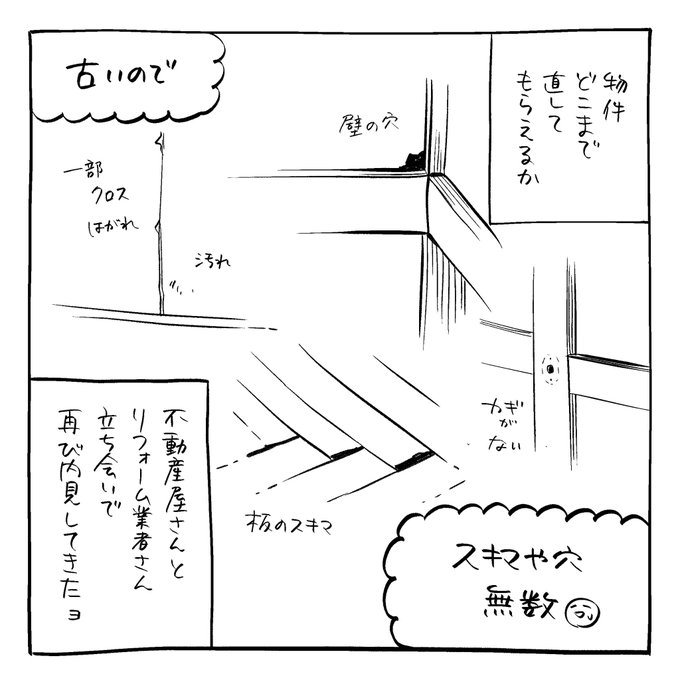 物件
どこまで
直して
もらえるか
古いので
壁の穴
一部
クロス
はがれ
汚れ
カギ
が
ない
板のスキマ
スキマや穴
無数
不動産屋さんと
リフォーム業者さん
立ち会いで
再び内見してきたヨ